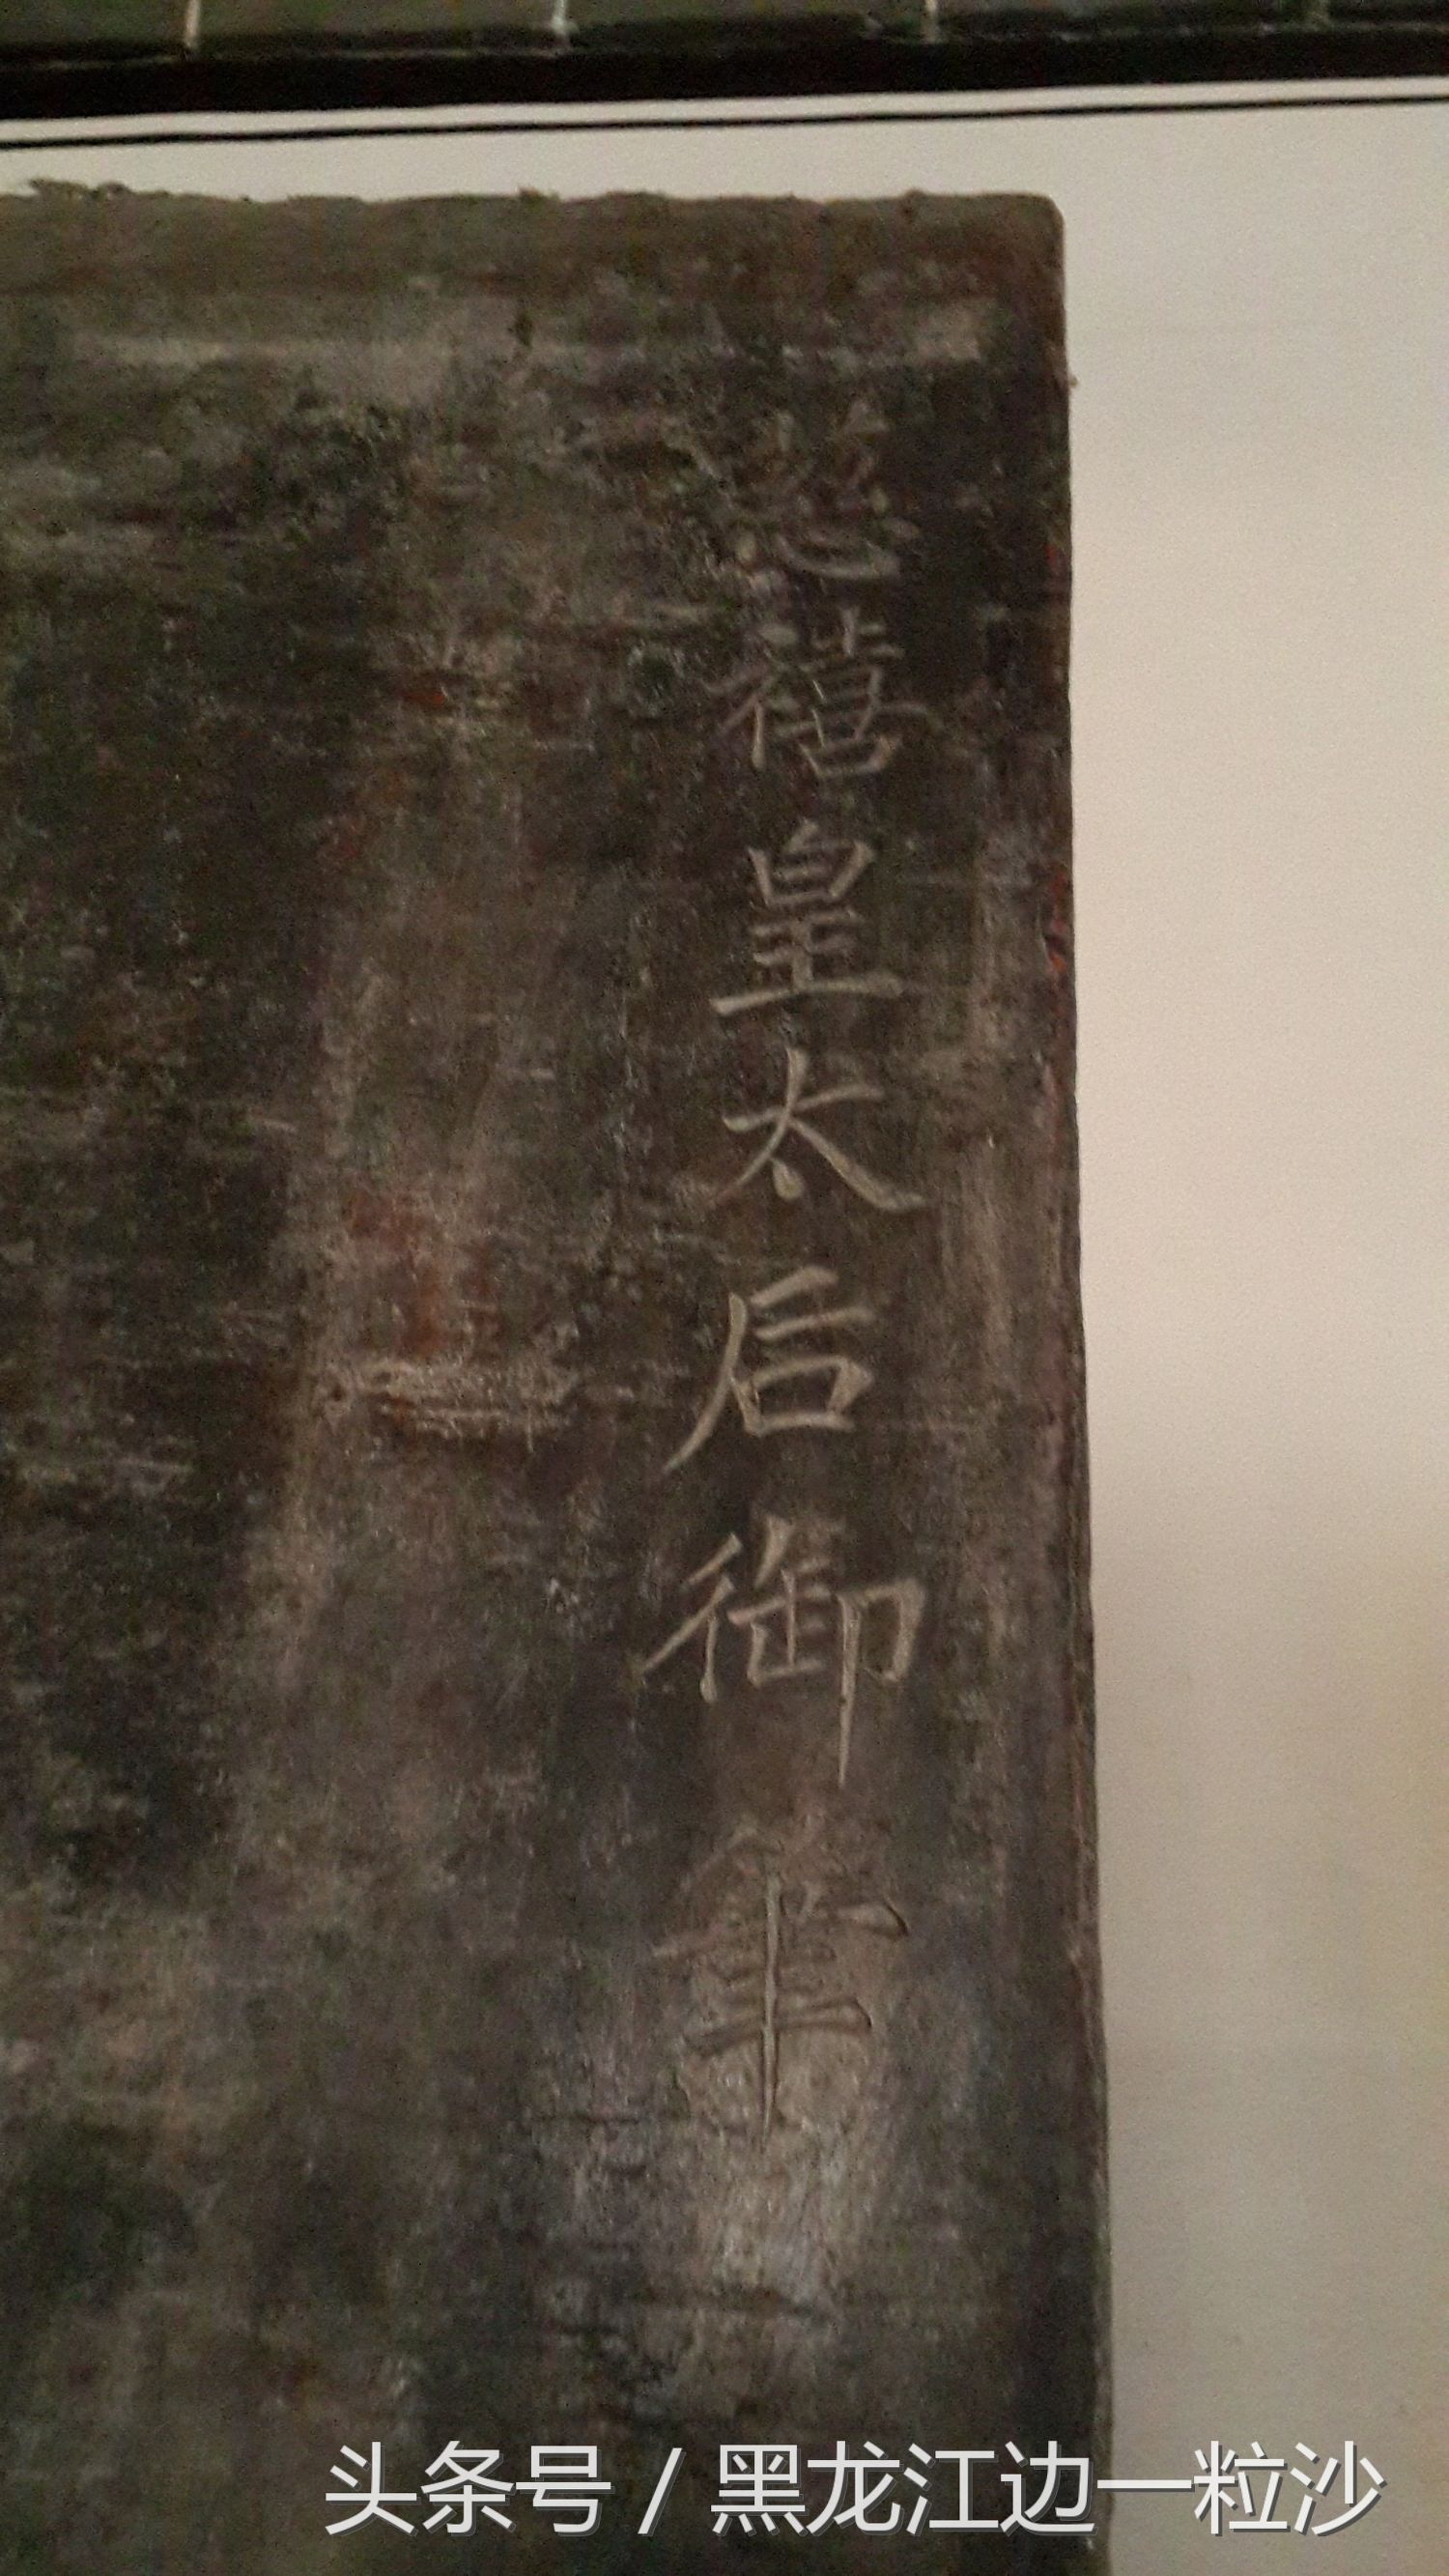 慈禧皇太后御筆
头条号 / 黑龙江边一粒沙